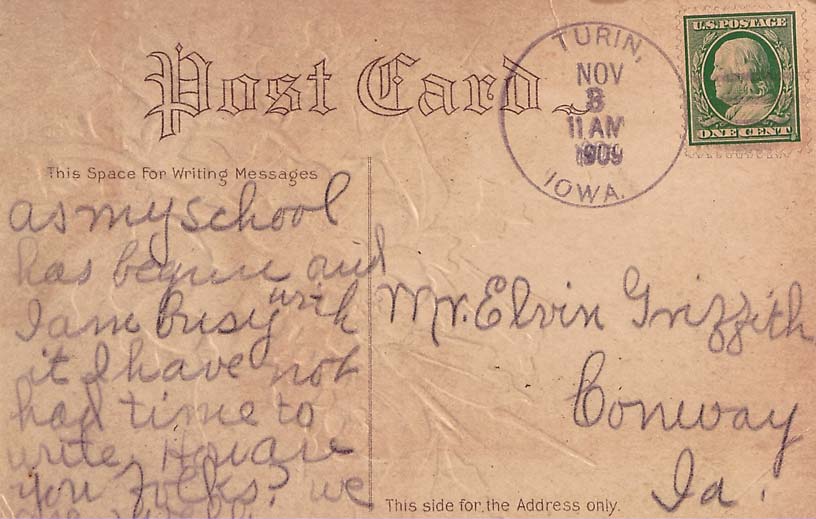 Post Card
TURIN,
NOV
8
11 AM
1909
IOWA.
U.S. POSTAGE
ONE CENT
This Space For Writing Messages
as my school
has begun and
I am busy with
it I have not
had time to
write. How are
you folks? we
Mr. Elvin Griffith
Conway
Ia.
This side for the Address only.